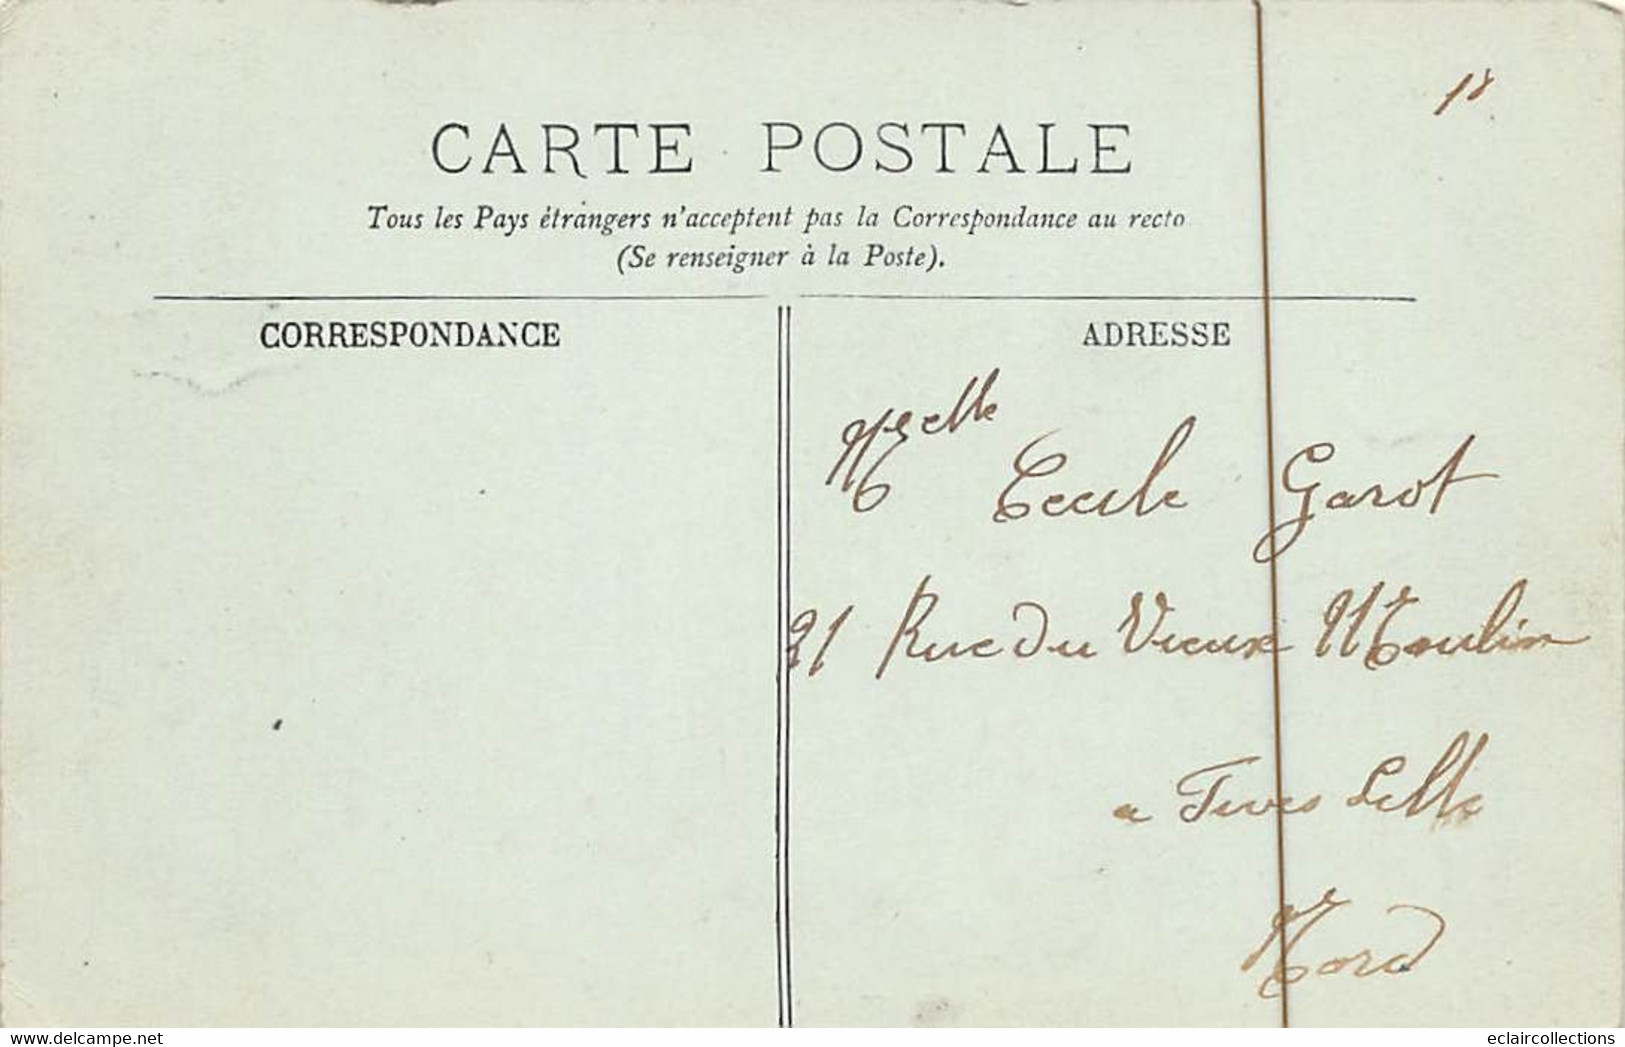 18
CARTE POSTALE
Tous les Pays étrangers n'acceptent pas la Correspondance au recto
(Se renseigner à la Poste).
CORRESPONDANCE
ADRESSE
Melle
Cecile Garot
21 Rue du Vieux Moulin
a Fives Lille
Nord
delcampe.net
eclaircollections